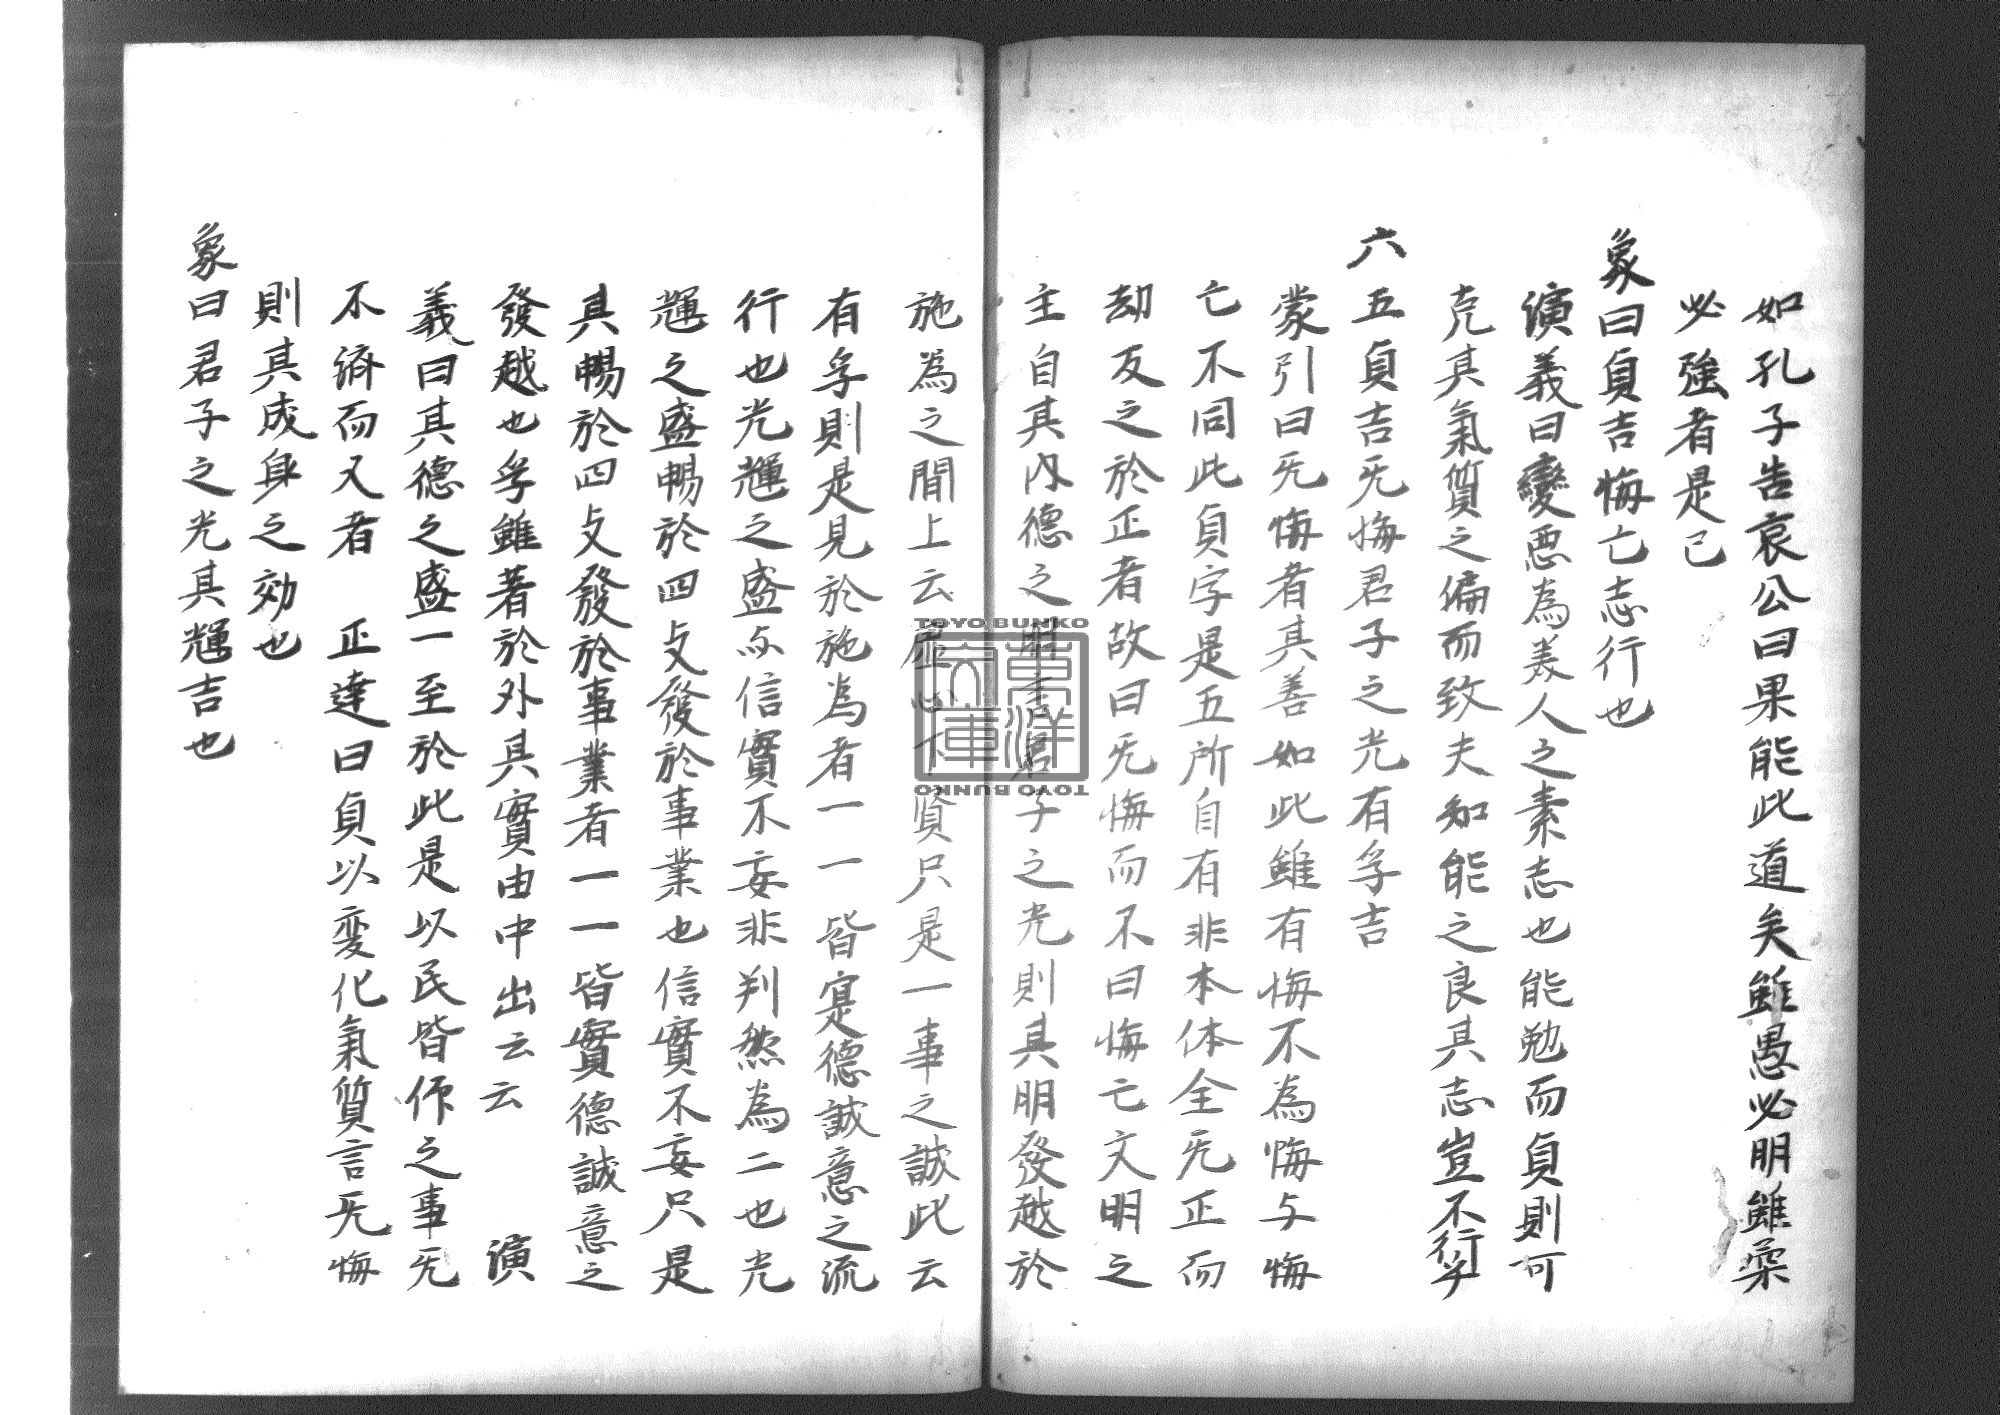 如孔子告哀公曰果能此道矣雖愚必明雖柔
必強者是已
象曰貞吉悔亡志行也
演義曰變惡為美人之素志也能勉而貞則可
克其氣質之偏而致夫知能之良其志豈不行乎
六五貞吉无悔君子之光有孚吉
蒙引曰无悔者其善如此雖有悔不為悔与悔
亡不同此貞字是五所自有非本体全无正而
刼反之於正者故曰无悔而不曰悔亡文明之
主自其内德之明言君子之光則其明發越於
施為之間上云虛心下賢只是一事之誠此云
有孚則是見於施為者一一皆寔德誠意之流
行也光輝之盛与信實不妄非判然為二也光
輝之盛暢於四支發於事業也信實不妄只是
其暢於四支發於事業者一一皆實德誠意之
發越也孚雖著於外其實由中出云云 演
義曰其德之盛一至於此是以民皆作之事无
不濟而又者 正達曰貞以変化氣質言无悔
則其成身之効也
象曰君子之光其輝吉也
TOYO BUNKO
東洋文庫
TOYO BUNKO